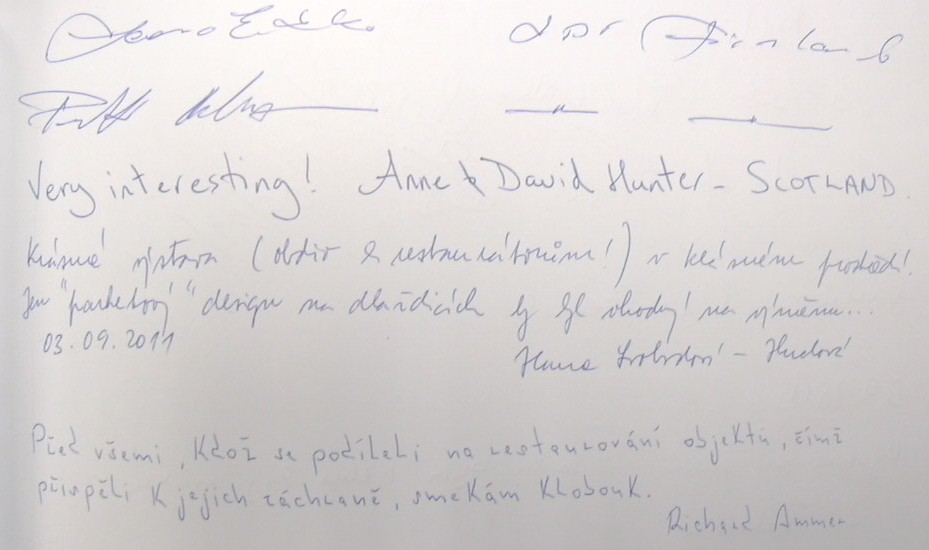 Very interesting! Anne & David Hunter - SCOTLAND.
Krásná výstava (obdiv k restaurátorům!) v krásném prostředí!
Jen "parketový" design na dlaždicích by byl vhodný na výměnu...
03.09.2011
Hana Svobodová - Hudová
Před všemi, kdož se podíleli na restaurování objektů, čímž
přispěli k jejich záchraně, smekám klobouk.
Richard Ammer